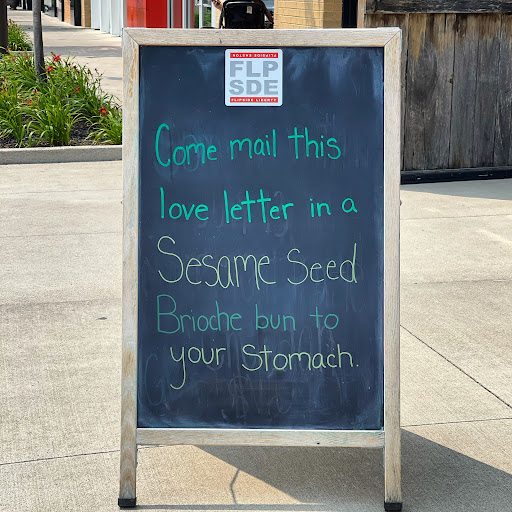 FLIPSIDE EASTON
FLP
SDE
FLIPSIDE LIBERTY
Come mail this
love letter in a
Sesame Seed
Brioche bun to
your Stomach.